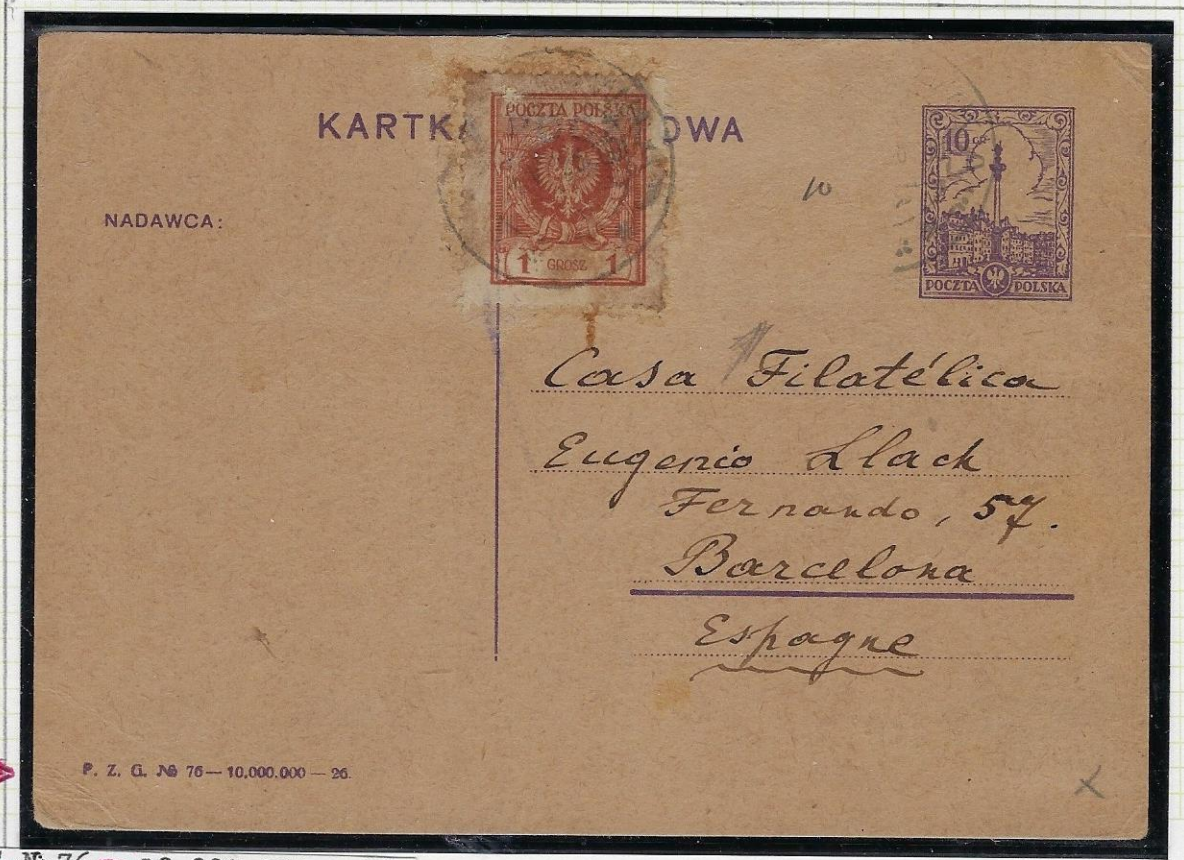 KARTKA OWA
POCZTA POLSKA
1 GROSZ 1
10 GR.
POCZTA POLSKA
10
NADAWCA:
Casa Filatélica
Eugenio Llach
Fernando, 57.
Barcelona
Espagne
P. Z. G. № 76 — 10.000.000 — 26.
X